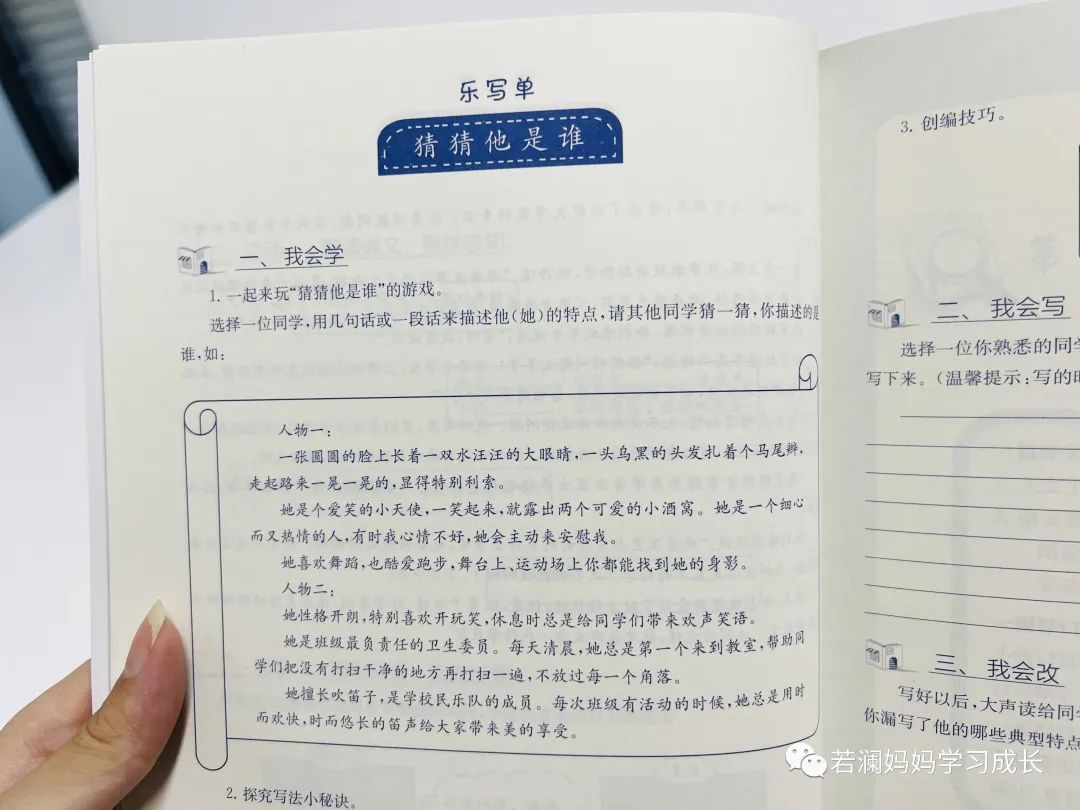 乐写单
猜猜他是谁
一、我会学
1. 一起来玐“猜猜他是谁”的游戏。
选择一位同学,用几句话或一段话来描述他(她)的特点,请其他同学猜一猜,你描述的是
谁,如:
人物一:
一张圆圆的脸上长着一双水汪汪的大眼睛,一头乌黑的头发扎着个马尾辫,
走起路来一晃一晃的,显得特别利索。
她是个爱笑的小天使,一笑起来,就露出两个可爱的小酒窝。她是一个细心
而又热情的人,有时我心情不好,她会主动来安慰我。
她喜欢舞蹈,也酷爱跑步,舞台上、运动场上你都能找到她的身影。
人物二:
她性格开朗,特别喜欢开玩笑,休息时总是给同学们带来欢声笑语。
她是班级最负责任的卫生委员。每天清晨,她总是第一个来到教室,帮助同
学们把没有打扫干净的地方再打扫一遍,不放过每一个角落。
她擅长吹笛子,是学校民乐队的成员。每次班级有活动的时候,她总是用时
而欢快,时而悠长的笛声给大家带来美的享受。
2. 探究写法小秘诀。
3. 创编技巧。
二、我会写
选择一位你熟悉的同学
写下来。(温馨提示:写的时
三、我会改
写好以后,大声读给同学
你漏写了他的哪些典型特点
若澜妈妈学习成长